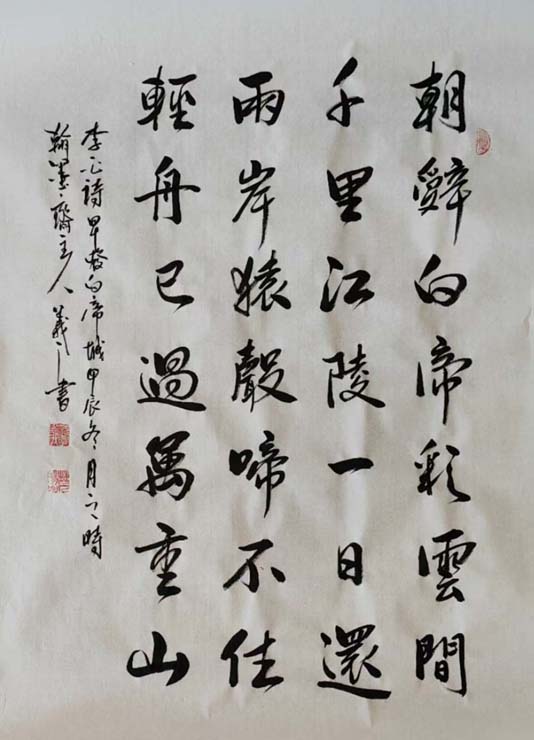 朝辭白帝彩雲間
千里江陵一日還
兩岸猿聲啼不住
輕舟已過萬重山
李白詩早發白帝城甲辰冬月之時
翰墨齋主人義之書